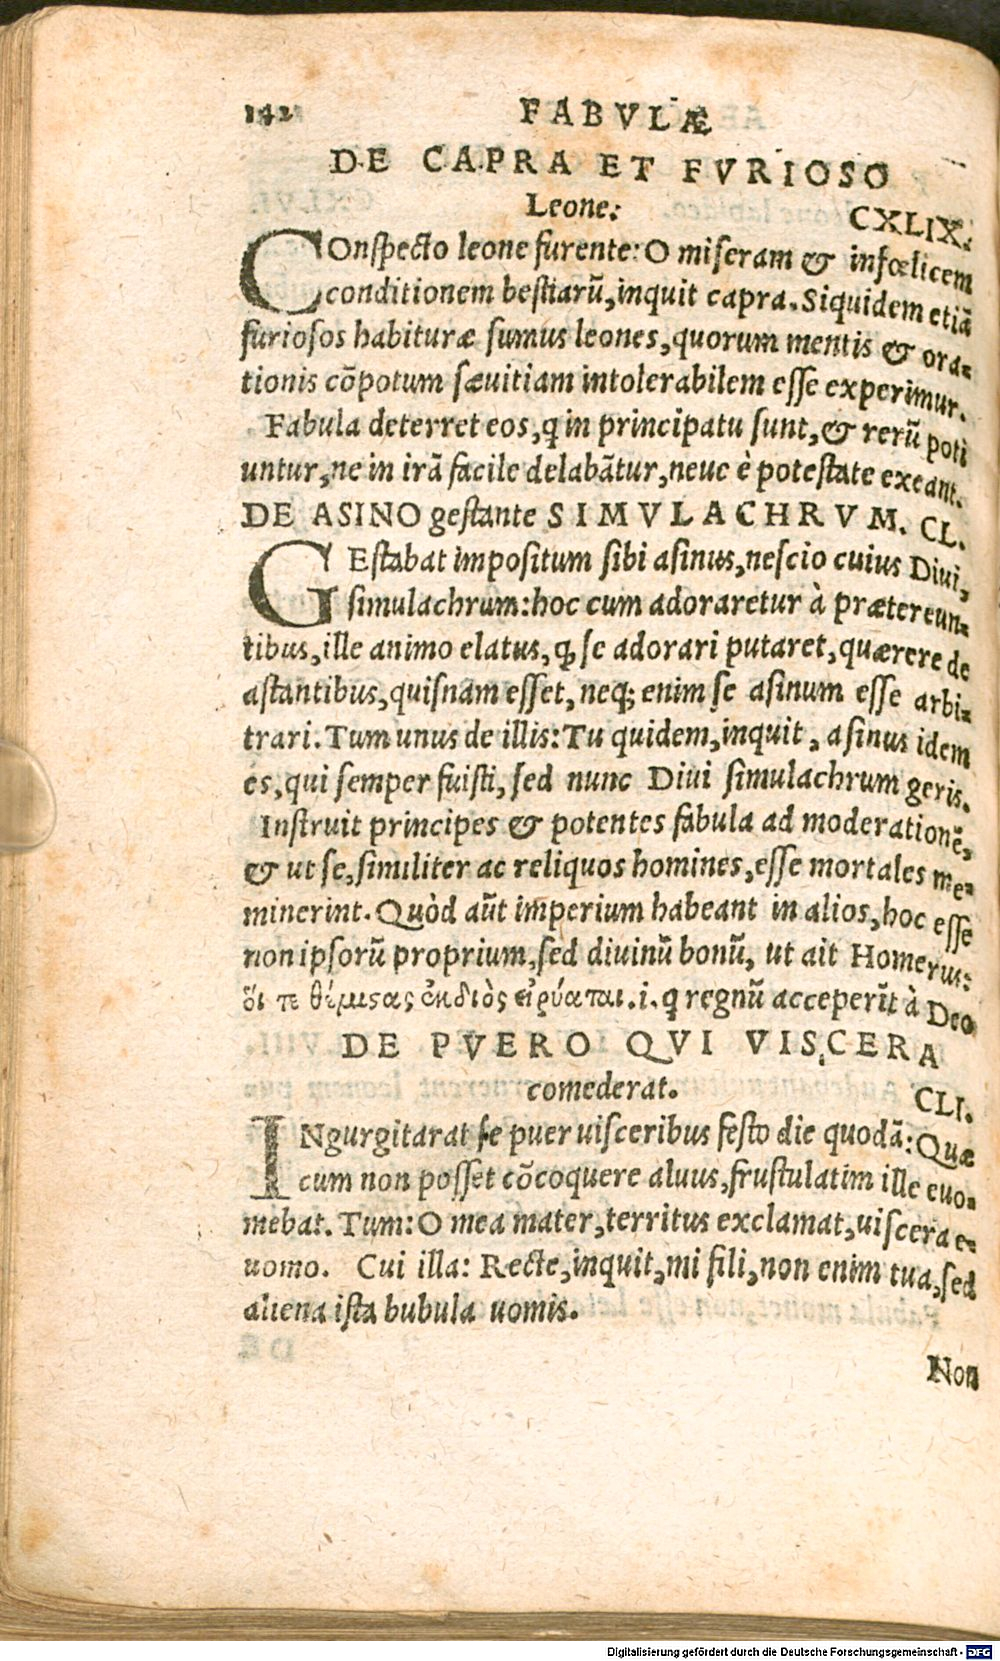 142 FABVLÆ
DE CAPRA ET FVRIOSO
Leone: CXLIX.
COnspecto leone furente: O miseram & infœlicem
conditionem bestiarū, inquit capra. Siquidem etiã
furiosos habituræ sumus leones, quorum mentis & ora-
tionis cōpotum sævitiam intolerabilem esse experimur.
Fabula deterret eos, q in principatu sunt, & rerū poti
untur, ne in irã facile delabãtur, neue è potestate exeant.
DE ASINO gestante SIMVLACHRVM. CL.
GEstabat impositum sibi asinus, nescio cuius Diui,
simulachrum: hoc cum adoraretur à prætereun-
tibus, ille animo elatus, ꝙ se adorari putaret, quærere de
astantibus, quisnam esset, neq; enim se asinum esse arbi-
trari. Tum unus de illis: Tu quidem, inquit, asinus idem
es, qui semper fuisti, sed nunc Diui simulachrum geris.
Instruit principes & potentes fabula ad moderationē,
& ut se, similiter ac reliquos homines, esse mortales me-
minerint. Quòd aūt imperium habeant in alios, hoc esse
non ipsorū proprium, sed diuinū bonū, ut ait Homerus:
ὅι τε θέμιϛας ἐκ διὸς εἰρύαται. i. q regnū acceperīt à Deo
DE PVERO QVI VISCERA
comederat. CLI.
INgurgitarat se puer uisceribus festo die quodã: Quæ
cum non posset cōcoquere aluus, frustulatim ille euo-
mebat. Tum: O mea mater, territus exclamat, uiscera e-
uomo. Cui illa: Recte, inquit, mi fili, non enim tua, sed
aliena ista bubula uomis.
Non
Digitalisierung gefördert durch die Deutsche Forschungsgemeinschaft - DFG